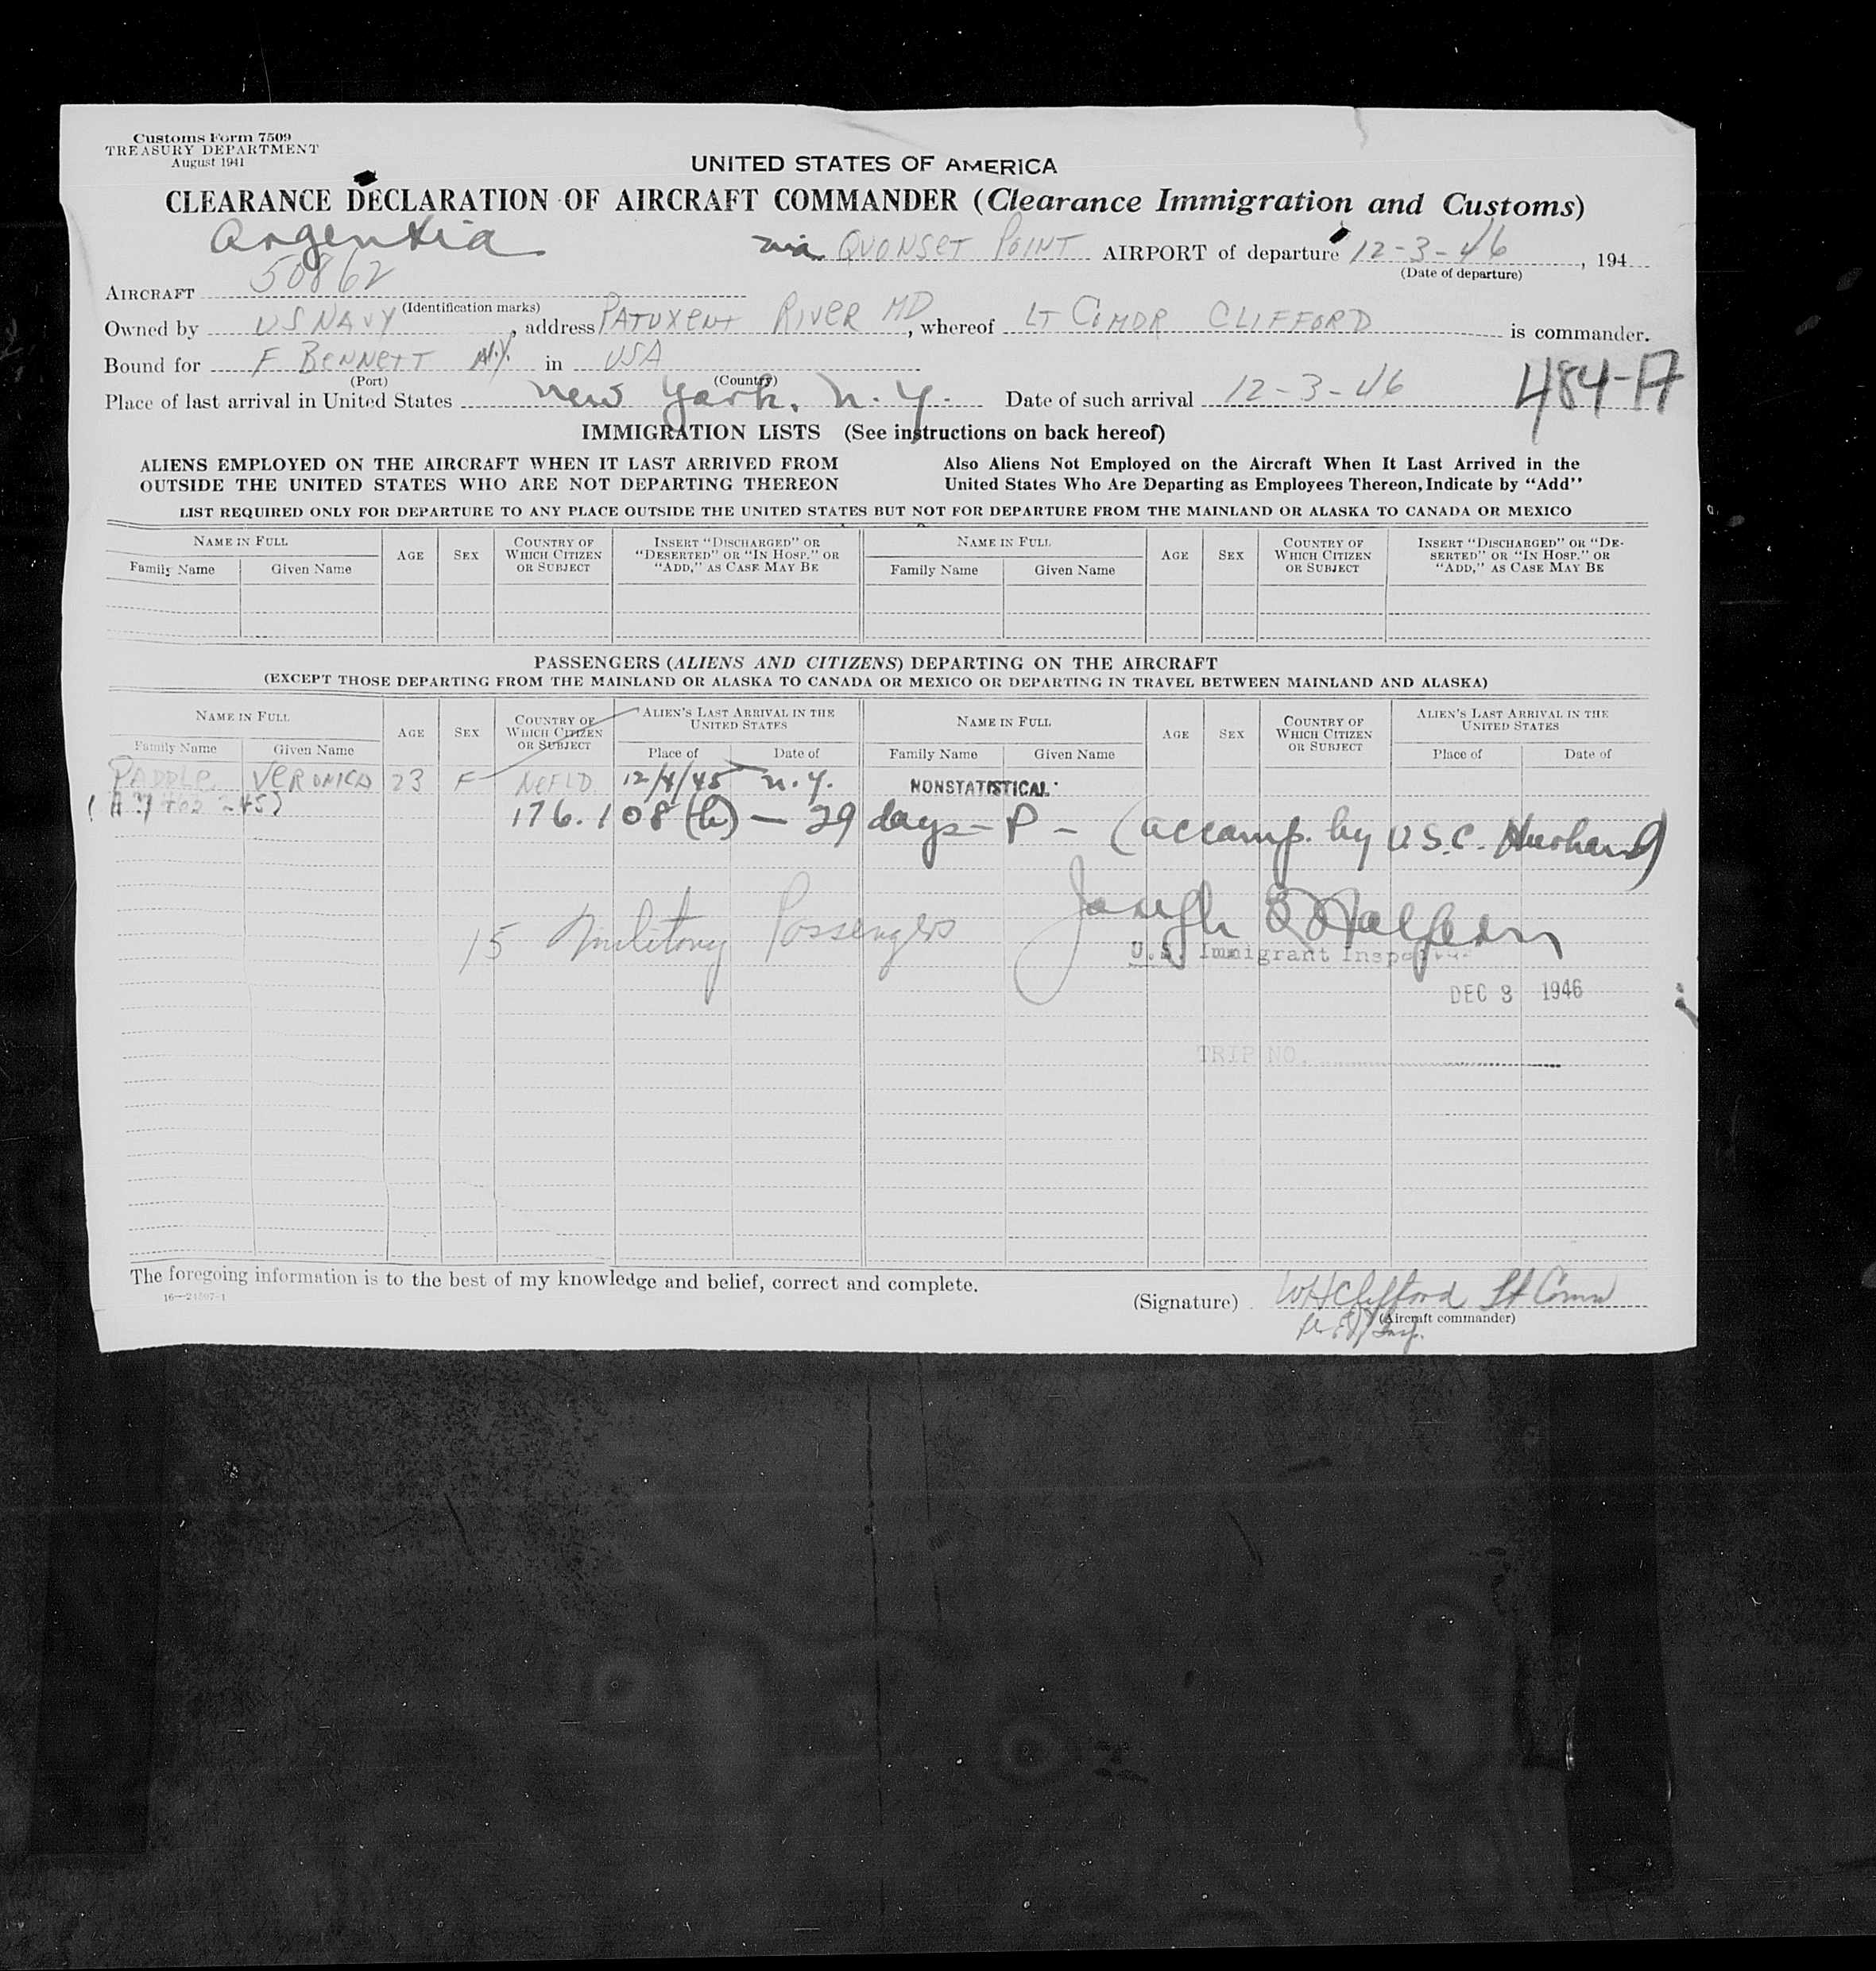 Customs Form 7509
TREASURY DEPARTMENT
August 1941
UNITED STATES OF AMERICA
CLEARANCE DECLARATION OF AIRCRAFT COMMANDER (Clearance Immigration and Customs)
Argentia via QUONSET POINT AIRPORT of departure 12-3-46, 194
(Date of departure)
AIRCRAFT 50862
(Identification marks)
Owned by US NAVY, address PATUXENT RIVER MD, whereof LT COMDR CLIFFORD is commander.
Bound for F BENNETT N.Y. in USA
(Port) (Country)
484-A
Place of last arrival in United States New York, N.Y. Date of such arrival 12-3-46
IMMIGRATION LISTS (See instructions on back hereof)
ALIENS EMPLOYED ON THE AIRCRAFT WHEN IT LAST ARRIVED FROM
OUTSIDE THE UNITED STATES WHO ARE NOT DEPARTING THEREON
Also Aliens Not Employed on the Aircraft When It Last Arrived in the
United States Who Are Departing as Employees Thereon, Indicate by "Add"
LIST REQUIRED ONLY FOR DEPARTURE TO ANY PLACE OUTSIDE THE UNITED STATES BUT NOT FOR DEPARTURE FROM THE MAINLAND OR ALASKA TO CANADA OR MEXICO
NAME IN FULL
Family Name Given Name
AGE SEX
COUNTRY OF
WHICH CITIZEN
OR SUBJECT
INSERT "DISCHARGED" OR
"DESERTED" OR "IN HOSP." OR
"ADD," AS CASE MAY BE
NAME IN FULL
Family Name Given Name
AGE SEX
COUNTRY OF
WHICH CITIZEN
OR SUBJECT
INSERT "DISCHARGED" OR "DE-
SERTED" OR "IN HOSP." OR
"ADD," AS CASE MAY BE
PASSENGERS (ALIENS AND CITIZENS) DEPARTING ON THE AIRCRAFT
(EXCEPT THOSE DEPARTING FROM THE MAINLAND OR ALASKA TO CANADA OR MEXICO OR DEPARTING IN TRAVEL BETWEEN MAINLAND AND ALASKA)
NAME IN FULL
Family Name Given Name
AGE SEX
COUNTRY OF
WHICH CITIZEN
OR SUBJECT
ALIEN'S LAST ARRIVAL IN THE
UNITED STATES
Place of Date of
NAME IN FULL
Family Name Given Name
AGE SEX
COUNTRY OF
WHICH CITIZEN
OR SUBJECT
ALIEN'S LAST ARRIVAL IN THE
UNITED STATES
Place of Date of
PADDLE VERONICA 23 F NEFLD 12/4/45 N.Y. NONSTATISTICAL
176.108(b) - 29 days - P - (accomp. by U.S.C. Husband)
15 Military Passengers
Joseph Halpern
U.S. Immigrant Inspector
DEC 3 1946
TRIP NO.
The foregoing information is to the best of my knowledge and belief, correct and complete.
(Signature) WH Clifford Lt Comm
(Aircraft commander)